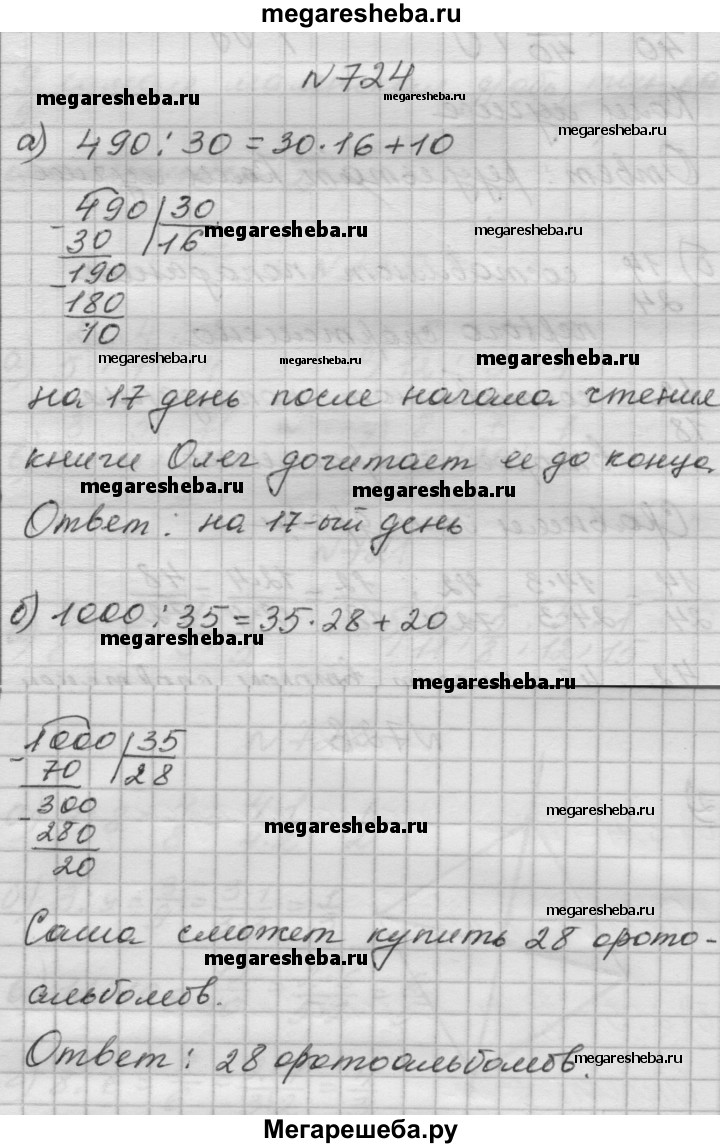 megaresheba.ru
N724
megaresheba.ru megaresheba.ru
megaresheba.ru
а) 490 : 30 = 30·16+10
490 | 30
- 30 | 16
megaresheba.ru megaresheba.ru
- 190
180
10
megaresheba.ru megaresheba.ru megaresheba.ru
на 17 день после начала чтение
книги Олег дочитает ее до конца.
megaresheba.ru megaresheba.ru
Ответ: на 17-ый день
б) 1000 : 35 = 35·28 + 20
megaresheba.ru
megaresheba.ru
- 1000 | 35
70 | 28
- 300
megaresheba.ru
280
megaresheba.ru
20
megaresheba.ru
Саша сможет купить 28 фото-
megaresheba.ru
альбомов.
Ответ: 28 фотоальбомов.
megaresheba.ru
Мегарешеба.ру